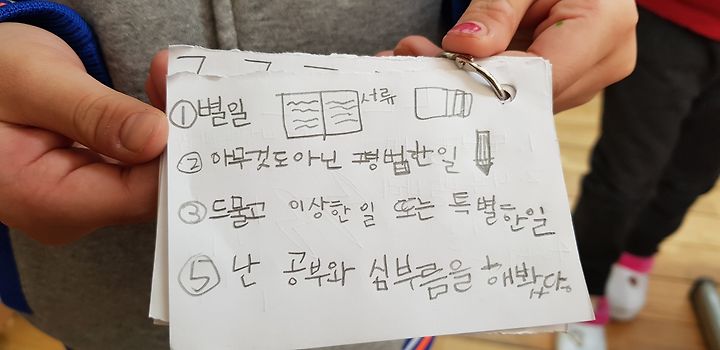 ①별일 서류
②아무것도아닌 평범한일
③드물고 이상한일 또는 특별한일
⑤난 공부와 심부름을 해봤당